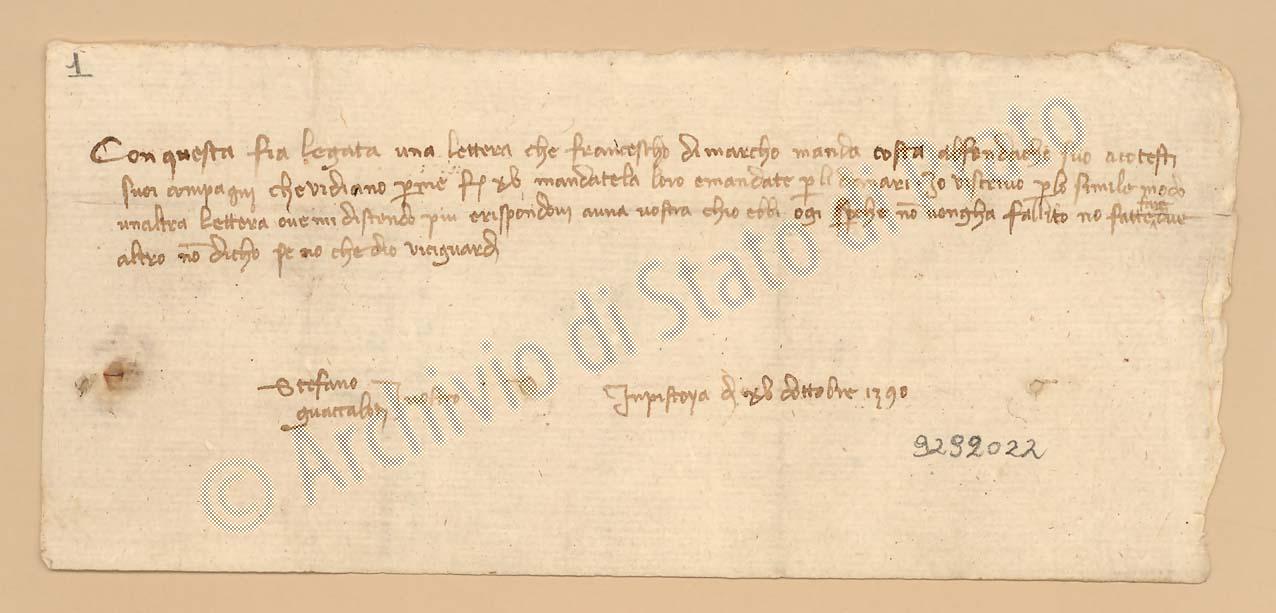 1
Con questa fia legata una lettera che francescho di marcho manda costa al fondacho suo a cotesti
suoi compagni che vi diano per me f xv mandatela loro e mandate per li danari Io vi scrivo per lo simile modo
un altra lettera ove mi distendo piu e rispondovi a una vostra ch io ebbi ogi non vengha fallito
altro non dicho se no che dio vi ci guardi
Stefano
guaccaloti
In pistoya di xv d ottobre 1390
9292022
© Archivio di Stato di Prato